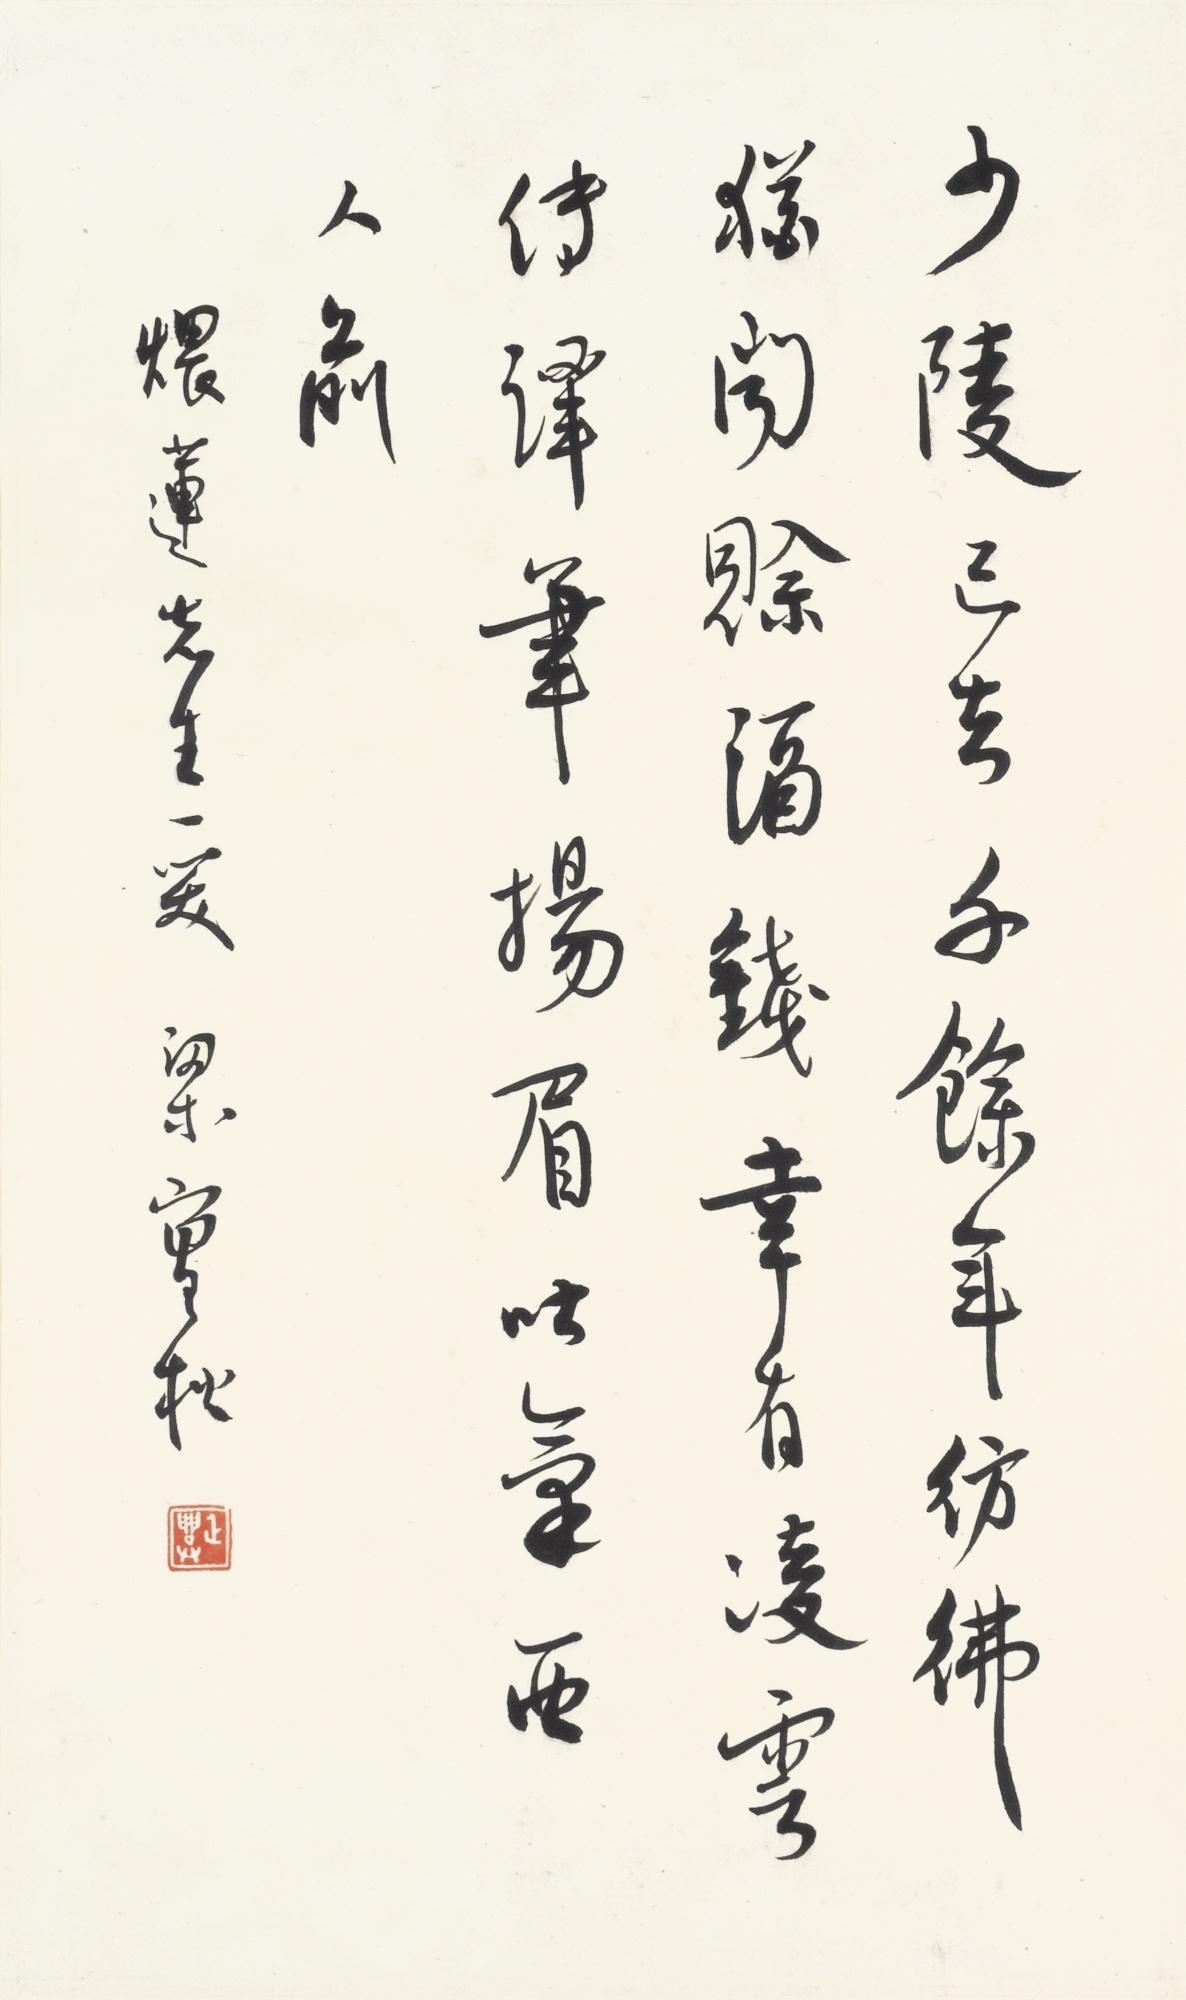 少陵已去千餘年彷彿
猶聞賒酒錢幸有凌雲
傳譯筆揚眉吐氣西
人前
煨蓮先生一笑 梁實秋